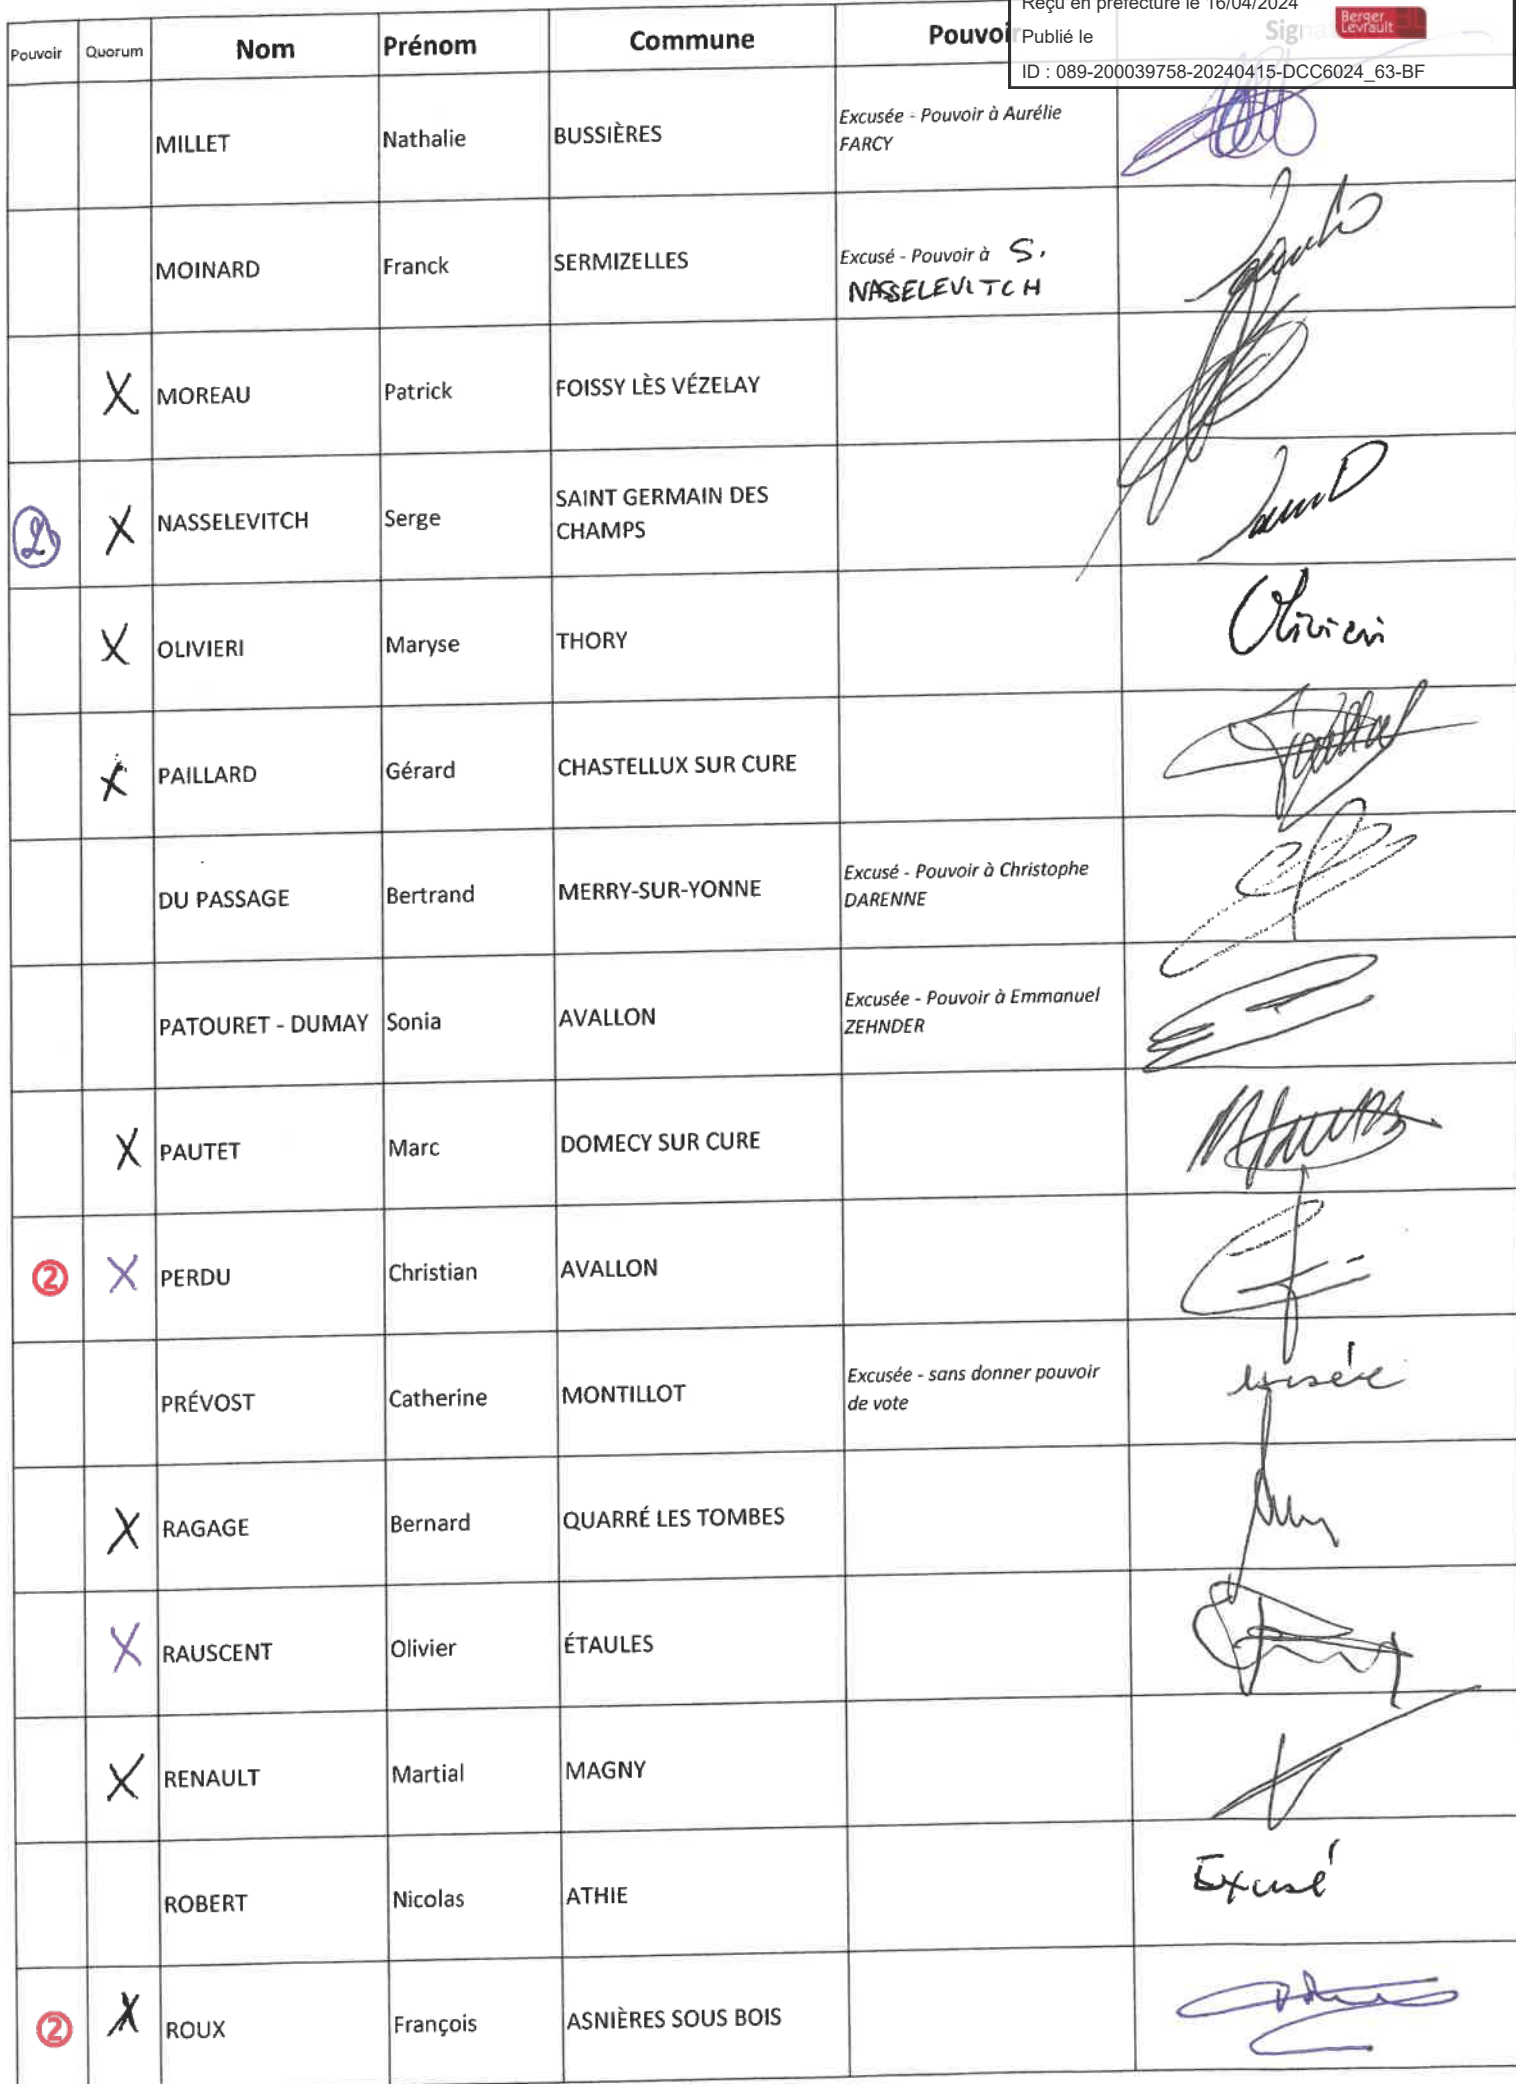 Reçu en préfecture le 16/04/2024
Publié le
Berger
Levrault
ID : 089-200039758-20240415-DCC6024_63-BF
Pouvoir Quorum Nom Prénom Commune Pouvoir
MILLET Nathalie BUSSIÈRES Excusée - Pouvoir à Aurélie
FARCY
MOINARD Franck SERMIZELLES Excusé - Pouvoir à S.
NASSELEVITCH
X MOREAU Patrick FOISSY LÈS VÉZELAY
2 X NASSELEVITCH Serge SAINT GERMAIN DES
CHAMPS
X OLIVIERI Maryse THORY Olivieri
X PAILLARD Gérard CHASTELLUX SUR CURE
DU PASSAGE Bertrand MERRY-SUR-YONNE Excusé - Pouvoir à Christophe
DARENNE
PATOURET - DUMAY Sonia AVALLON Excusée - Pouvoir à Emmanuel
ZEHNDER
X PAUTET Marc DOMECY SUR CURE
2 X PERDU Christian AVALLON
PRÉVOST Catherine MONTILLOT Excusée - sans donner pouvoir
de vote
X RAGAGE Bernard QUARRÉ LES TOMBES
X RAUSCENT Olivier ÉTAULES
X RENAULT Martial MAGNY
ROBERT Nicolas ATHIE Excusé
2 X ROUX François ASNIÈRES SOUS BOIS